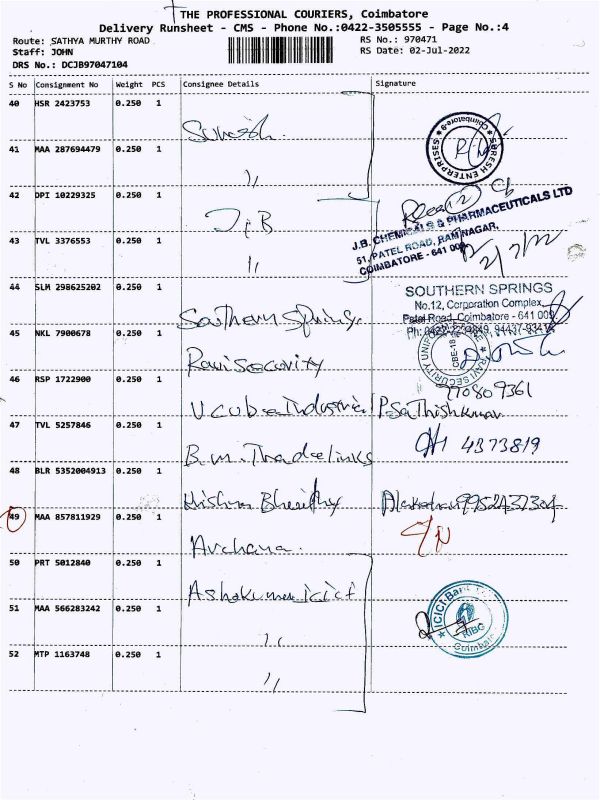 THE PROFESSIONAL COURIERS, Coimbatore
Delivery Runsheet - CMS - Phone No.:0422-3505555 - Page No.:4
Route: SATHYA MURTHY ROAD
RS No.: 970471
Staff: JOHN
RS Date: 02-Jul-2022
DRS No.: DCJB97047104
S No Consignment No Weight PCS Consignee Details Signature
40 HSR 2423753 0.250 1
Suresh.
SURESH ENTERPRISES
Coimbatore
41 MAA 287694479 0.250 1
,,
42 DPI 10229325 0.250 1
J & B
J.B. CHEMICALS & PHARMACEUTICALS LTD
51, PATEL ROAD, RAM NAGAR,
COIMBATORE - 641 009
2/7/22
43 TVL 3376553 0.250 1
,,
44 SLM 298625202 0.250 1
Southern Springs.
SOUTHERN SPRINGS
No.12, Corporation Complex,
Patel Road, Coimbatore - 641 009
45 NKL 7900678 0.250 1
Ravi Security
RAVI SECURITY UNIFORM
CBE-18
46 RSP 1722900 0.250 1
Ucube Industrial P.Sathishkumar
47 TVL 5257846 0.250 1
B.m. Tradelinks
4373819
48 BLR 5352004913 0.250 1
Krishna
49 MAA 857811929 0.250 1
Archana.
50 PRT 5012840 0.250 1
Ashokumar icici
ICICI Bank
RIBG
Coimbatore
51 MAA 566283242 0.250 1
,,
52 MTP 1163748 0.250 1
,,